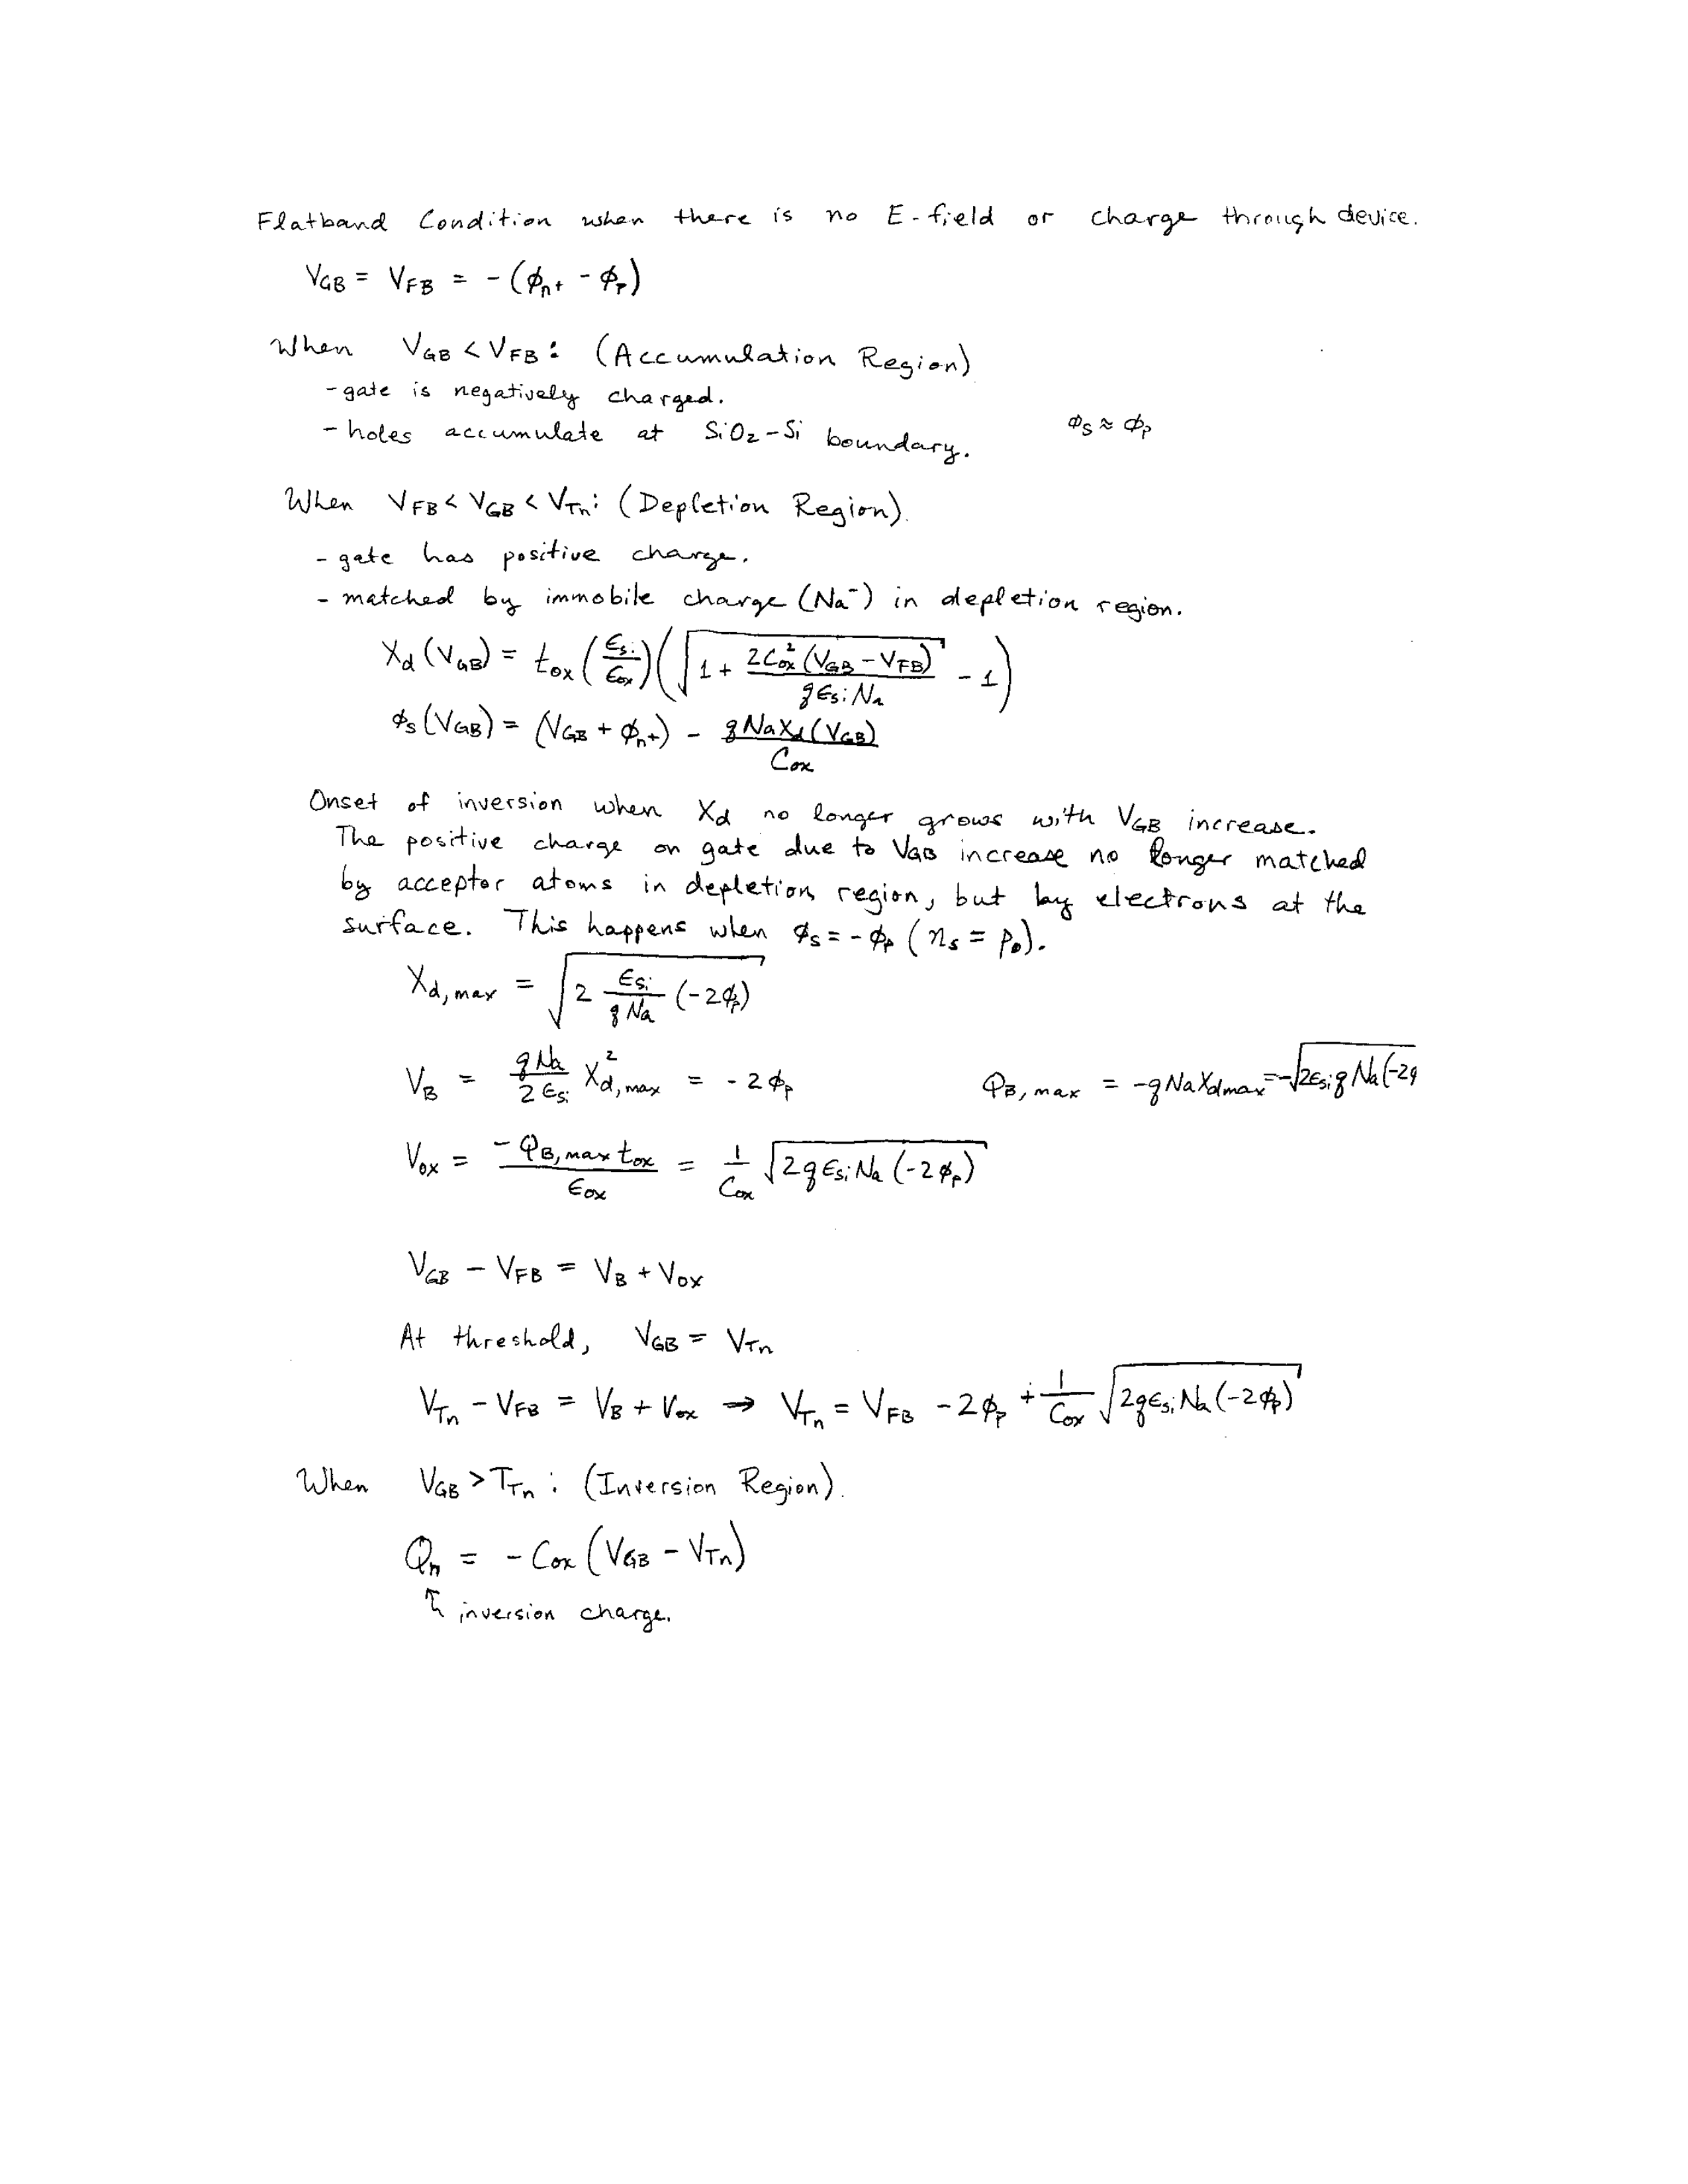 Flatband Condition when there is no E-field or charge through device.
V_GB = V_FB = -(ϕ_n+ - ϕ_p)
When V_GB < V_FB: (Accumulation Region)
- gate is negatively charged.
- holes accumulate at SiO2-Si boundary. ϕ_s ≈ ϕ_p
When V_FB < V_GB < V_Tn: (Depletion Region).
- gate has positive charge.
- matched by immobile charge (Na⁻) in depletion region.
X_d(V_GB) = t_ox (ϵ_si/ϵ_ox)(√(1 + 2C_ox²(V_GB - V_FB)/(qϵ_si Na)) - 1)
ϕ_s(V_GB) = (V_GB + ϕ_n+) - qNaX_d(V_GB)/C_ox
Onset of inversion when X_d no longer grows with V_GB increase.
The positive charge on gate due to V_GB increase no longer matched
by acceptor atoms in depletion region, but by electrons at the
surface. This happens when ϕ_s = -ϕ_p (n_s = p_o).
X_d,max = √(2 ϵ_si/(qNa) (-2ϕ_p))
V_B = qNa/(2ϵ_si) X²_d,max = -2ϕ_p Q_B,max = -qNaX_dmax = -√(2ϵ_si q Na(-2ϕ
V_ox = -Q_B,max t_ox/ϵ_ox = 1/C_ox √(2qϵ_si Na(-2ϕ_p))
V_GB - V_FB = V_B + V_ox
At threshold, V_GB = V_Tn
V_Tn - V_FB = V_B + V_ox → V_Tn = V_FB - 2ϕ_p + 1/C_ox √(2qϵ_si Na(-2ϕ_p))
When V_GB > T_Tn: (Inversion Region).
Q_n = -C_ox(V_GB - V_Tn)
↑ inversion charge.